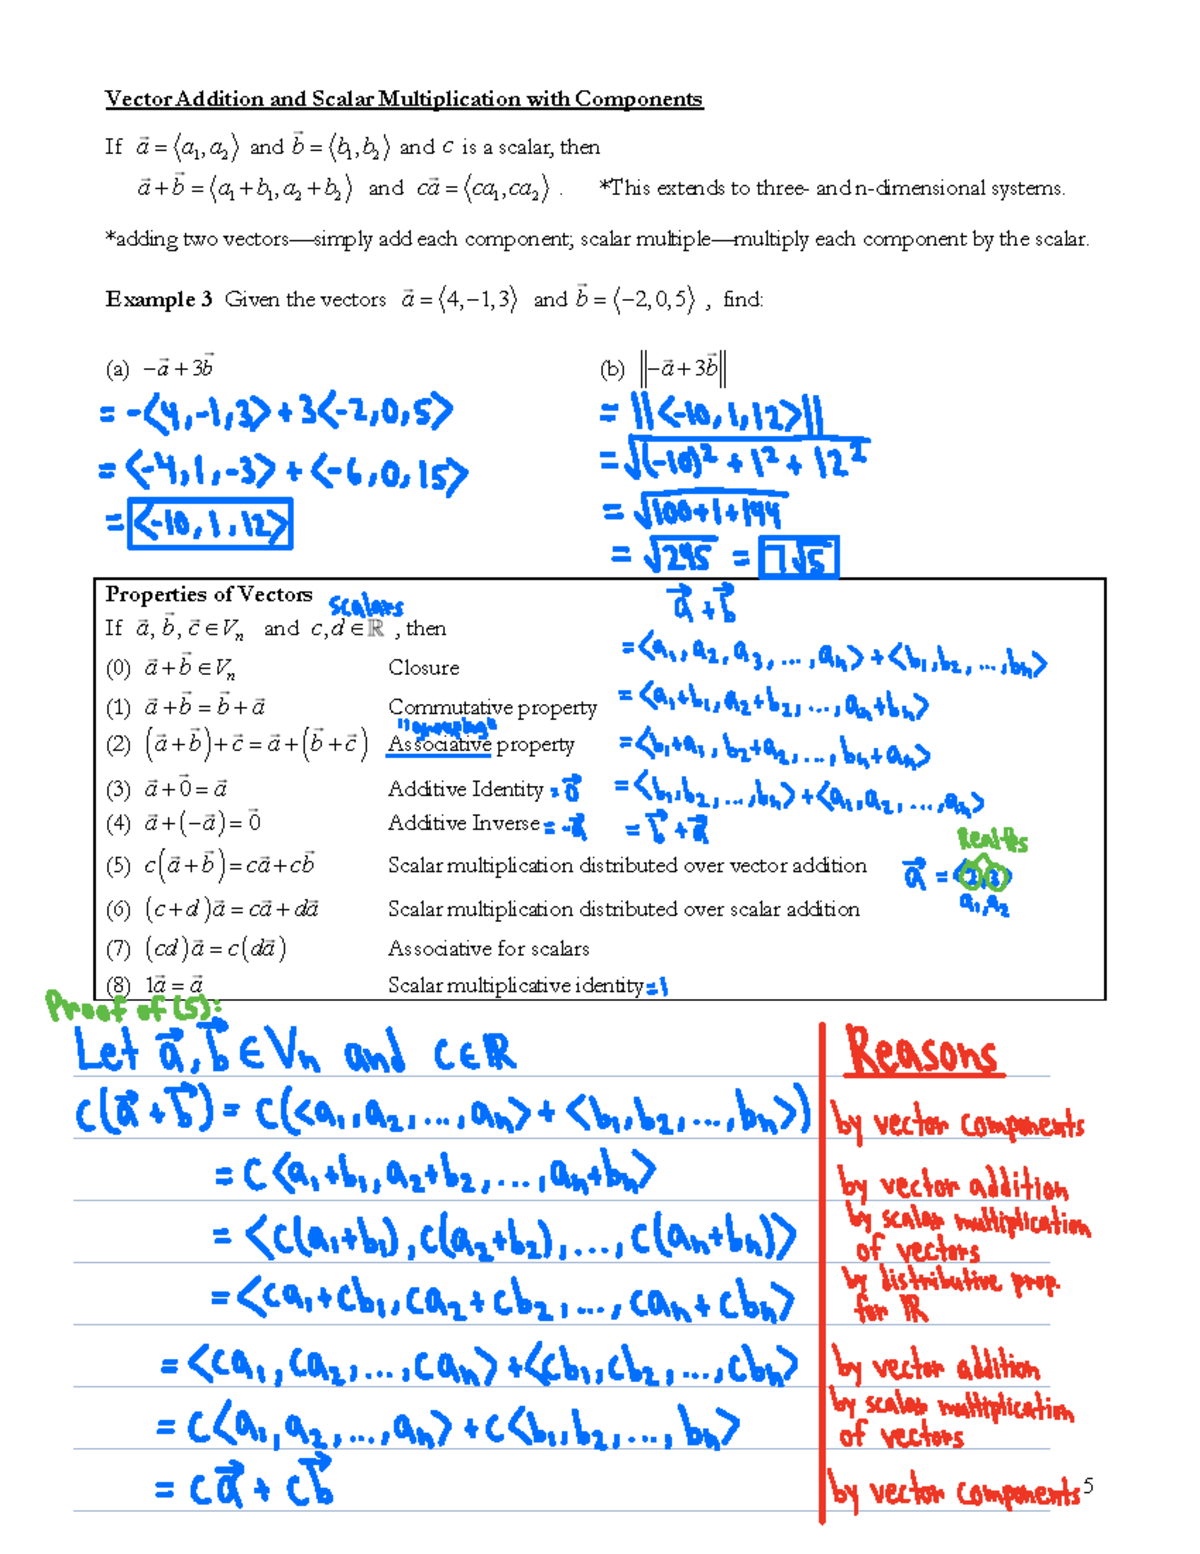 Vector Addition and Scalar Multiplication with Components
If a⃗ = ⟨a₁, a₂⟩ and b⃗ = ⟨b₁, b₂⟩ and c is a scalar, then
a⃗ + b⃗ = ⟨a₁ + b₁, a₂ + b₂⟩ and ca⃗ = ⟨ca₁, ca₂⟩ . *This extends to three- and n-dimensional systems.
*adding two vectors—simply add each component; scalar multiple—multiply each component by the scalar.
Example 3 Given the vectors a⃗ = ⟨4, −1, 3⟩ and b⃗ = ⟨−2, 0, 5⟩ , find:
(a) −a⃗ + 3b⃗
= -⟨4, -1, 3⟩ + 3⟨-2, 0, 5⟩
= ⟨-4, 1, -3⟩ + ⟨-6, 0, 15⟩
= ⟨-10, 1, 12⟩
(b) ‖−a⃗ + 3b⃗‖
= ||⟨-10, 1, 12⟩||
= √(-10)² + 1² + 12²
= √100+1+144
= √245 = 7√5
Properties of Vectors
scalars
If a⃗, b⃗, c⃗ ∈ Vₙ and c, d ∈ ℝ , then
(0) a⃗ + b⃗ ∈ Vₙ Closure
(1) a⃗ + b⃗ = b⃗ + a⃗ Commutative property
"grouping"
(2) (a⃗ + b⃗) + c⃗ = a⃗ + (b⃗ + c⃗) Associative property
(3) a⃗ + 0⃗ = a⃗ Additive Identity = 0⃗
(4) a⃗ + (−a⃗) = 0⃗ Additive Inverse = -a⃗
(5) c(a⃗ + b⃗) = ca⃗ + cb⃗ Scalar multiplication distributed over vector addition
(6) (c + d)a⃗ = ca⃗ + da⃗ Scalar multiplication distributed over scalar addition
(7) (cd)a⃗ = c(da⃗) Associative for scalars
(8) 1a⃗ = a⃗ Scalar multiplicative identity = 1
a⃗ + b⃗
= ⟨a₁, a₂, a₃, ..., aₙ⟩ + ⟨b₁, b₂, ..., bₙ⟩
= ⟨a₁+b₁, a₂+b₂, ..., aₙ+bₙ⟩
= ⟨b₁+a₁, b₂+a₂, ..., bₙ+aₙ⟩
= ⟨b₁, b₂, ..., bₙ⟩ + ⟨a₁, a₂, ..., aₙ⟩
= b⃗ + a⃗
Real #s
a⃗ = ⟨2, 3⟩
a₁, a₂
Proof of (5):
Let a⃗, b⃗ ∈ Vₙ and c ∈ ℝ Reasons
c(a⃗ + b⃗) = c(⟨a₁, a₂, ..., aₙ⟩ + ⟨b₁, b₂, ..., bₙ⟩) by vector components
= c⟨a₁+b₁, a₂+b₂, ..., aₙ+bₙ⟩ by vector addition
= ⟨c(a₁+b₁), c(a₂+b₂), ..., c(aₙ+bₙ)⟩ by scalar multiplication
of vectors
= ⟨ca₁+cb₁, ca₂+cb₂, ..., caₙ+cbₙ⟩ by distributive prop.
for ℝ
= ⟨ca₁, ca₂, ..., caₙ⟩ + ⟨cb₁, cb₂, ..., cbₙ⟩ by vector addition
= c⟨a₁, a₂, ..., aₙ⟩ + c⟨b₁, b₂, ..., bₙ⟩ by scalar multiplication
of vectors
= ca⃗ + cb⃗ by vector components
5